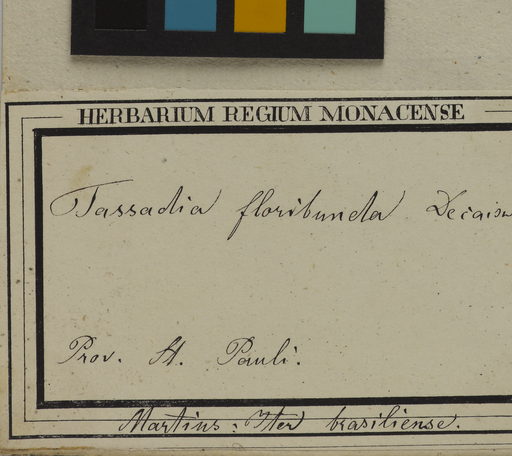 HERBARIUM REGIUM MONACENSE
Tassadia floribunda Decaisn
Prov. St. Pauli.
Martius: Iter brasiliense.